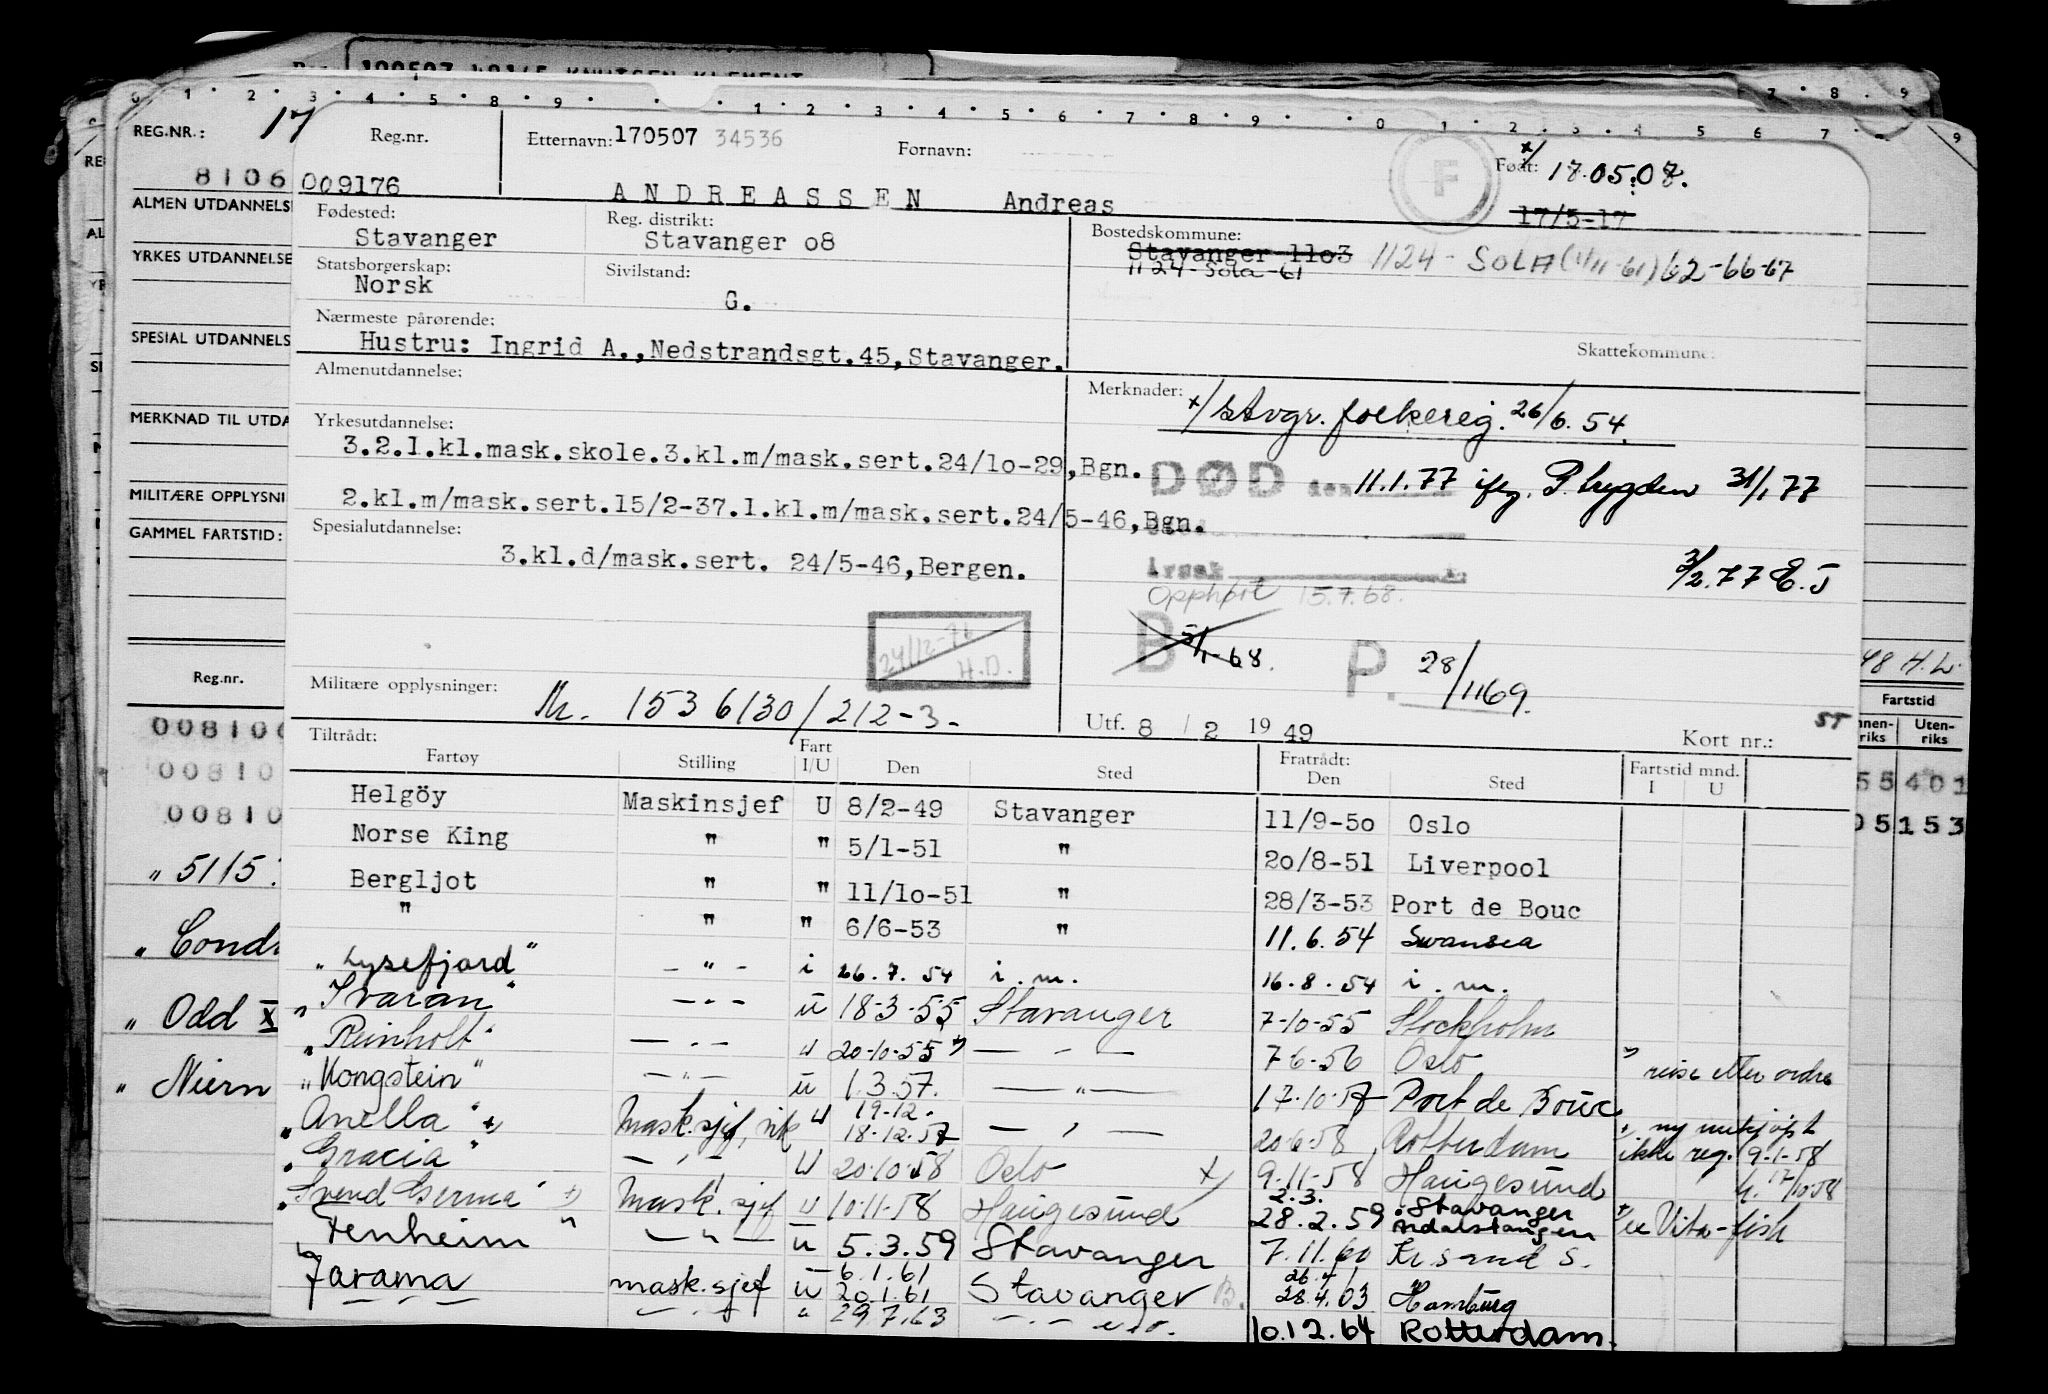 100507 49145 KNUTSEN KLEMENT
REG.NR.: 17
8106
ALMEN UTDANNELSE
YRKES UTDANNELSE
SPESIAL UTDANNELS
MERKNAD TIL UTDA
MILITÆRE OPPLYSNI
GAMMEL FARTSTID:
Reg.nr.
008106
00810
00810
" 5115
" Cond
" Odd X
" Niern
Reg.nr. Etternavn: 170507 34536 Fornavn: F Født: x/ 17.05.07.
009176 ANDREASSEN Andreas 17/5-17
Fødested: Reg. distrikt: Bostedskommune:
Stavanger Stavanger o8 Stavanger 11o3 1124 - SOLA (1/11-61) 62-66-67
1124-Sola-61
Statsborgerskap: Sivilstand:
Norsk G.
Nærmeste pårørende:
Hustru: Ingrid A.,Nedstrandsgt.45,Stavanger.
Skattekommune:
Almenutdannelse: Merknader:
x/ Stvgr. folkereg. 26/6.54.
Yrkesutdannelse:
3.2.1.kl.mask.skole.3.kl.m/mask.sert.24/1o-29,Bgn.
DØD den 11.1.77 iflg. P.trygden 31/1 77
2.kl.m/mask.sert.15/2-37.1.kl.m/mask.sert.24/5-46,Bgn.
Spesialutdannelse:
3.kl.d/mask.sert. 24/5-46,Bergen.
Årsak 3/2.77 E.J
Opphørt 15.7.68.
B 5/1-68. P. 28/1169.
24/12-76
H.D.
Militære opplysninger: Nr. 1536/30/212-3-
Utf. 8 / 2 19 49 Kort nr.: ST
48 H.L.
Fartstid
Innen-riks Uten-riks
55 401
05 153
Tiltrådt: Fratrådt: Fartstid mnd.
Fartøy Stilling Fart I/U Den Sted Den Sted I U
Helgöy Maskinsjef U 8/2-49 Stavanger 11/9-5o Oslo
Norse King " " 5/1-51 " 2o/8-51 Liverpool
Bergljot " " 11/1o-51 " 28/3-53 Port de Bouc
" " " 6/6-53 " 11.6.54 Swansea
"Lysefjord" - " - i 26.7.54 i.m. 16.8.54 i.m.
"Ivaran" - " - u 18-3-55 Stavanger 7-10-55 Stockholm
"Reinholt" - " - u 20-10-55 x) - " - 7-6-56 Oslo x) reise etter ordre
"Kongstein" - " - u 1.3.57. - " - 17-10-57 Port de Bouc
"Anella" x) Mask.sjef, vik u 19-12. 18-12-57 - " - 20-6-58 Rotterdam x) ny innkjøpt ikke reg. 9-1-58
"Gracia" - " - u 20-10-58 Oslo x) 9-11-58 Haugesund 17/10-58
"Svend Germa" x) Mask.sjef u 10-11-58 Haugesund 2.3. 28.2.59 Stavanger Årdalstangen x) ex Vita-fish
"Fenheim" - " - u 5.3.59 Stavanger 7.11.60 Kr.sand S.
Jarama mask.sjef u 6.1.61 20.1.61 Stavanger B. 26.4 28.4.63 Hamburg
- " - " 29.7.63 - " - 10.12.64 Rotterdam.